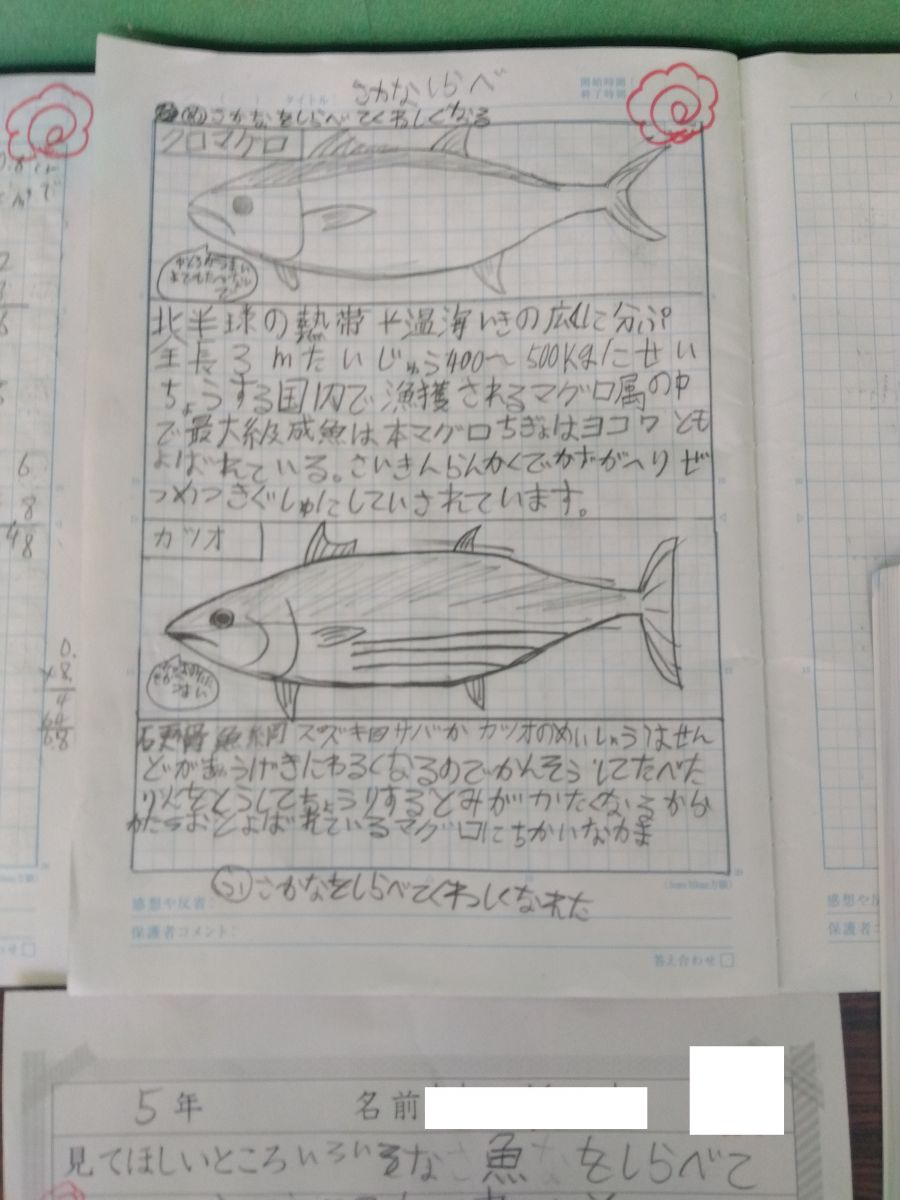 さかなしらべ
タイトル
開始時間:
終了時間
め さかなをしらべてくわしくなる
クロマグロ
北半球の熱帯や温海いきの広くに分ぷ
全長3mたいじゅう400〜500Kgにせい
ちょうする国内で漁獲されるマグロ属の中
で最大級成魚は本マグロちぎょはヨコワとも
よばれている。さいきんらんかくでかずがへりぜ
つめつきぐしゅにしていされています。
カツオ
硬骨魚綱スズキ目サバか カツオのめいしゅうはせん
どがきゅうげきにわるくなるのでかんそうしてたべた
りんをとうしてちょうりするとみがかたくなるから
かたうおとよばれているマグロにちかいなかま
さかなをしらべてくわしくなれた
(5mm10mm方眼)
感想や反省:
保護者コメント:
答え合わせ
5年
名前
見てほしいところいろいろな魚をしらべて
6
8
48
0.
×8
4
64
68
感想や
保護者コ